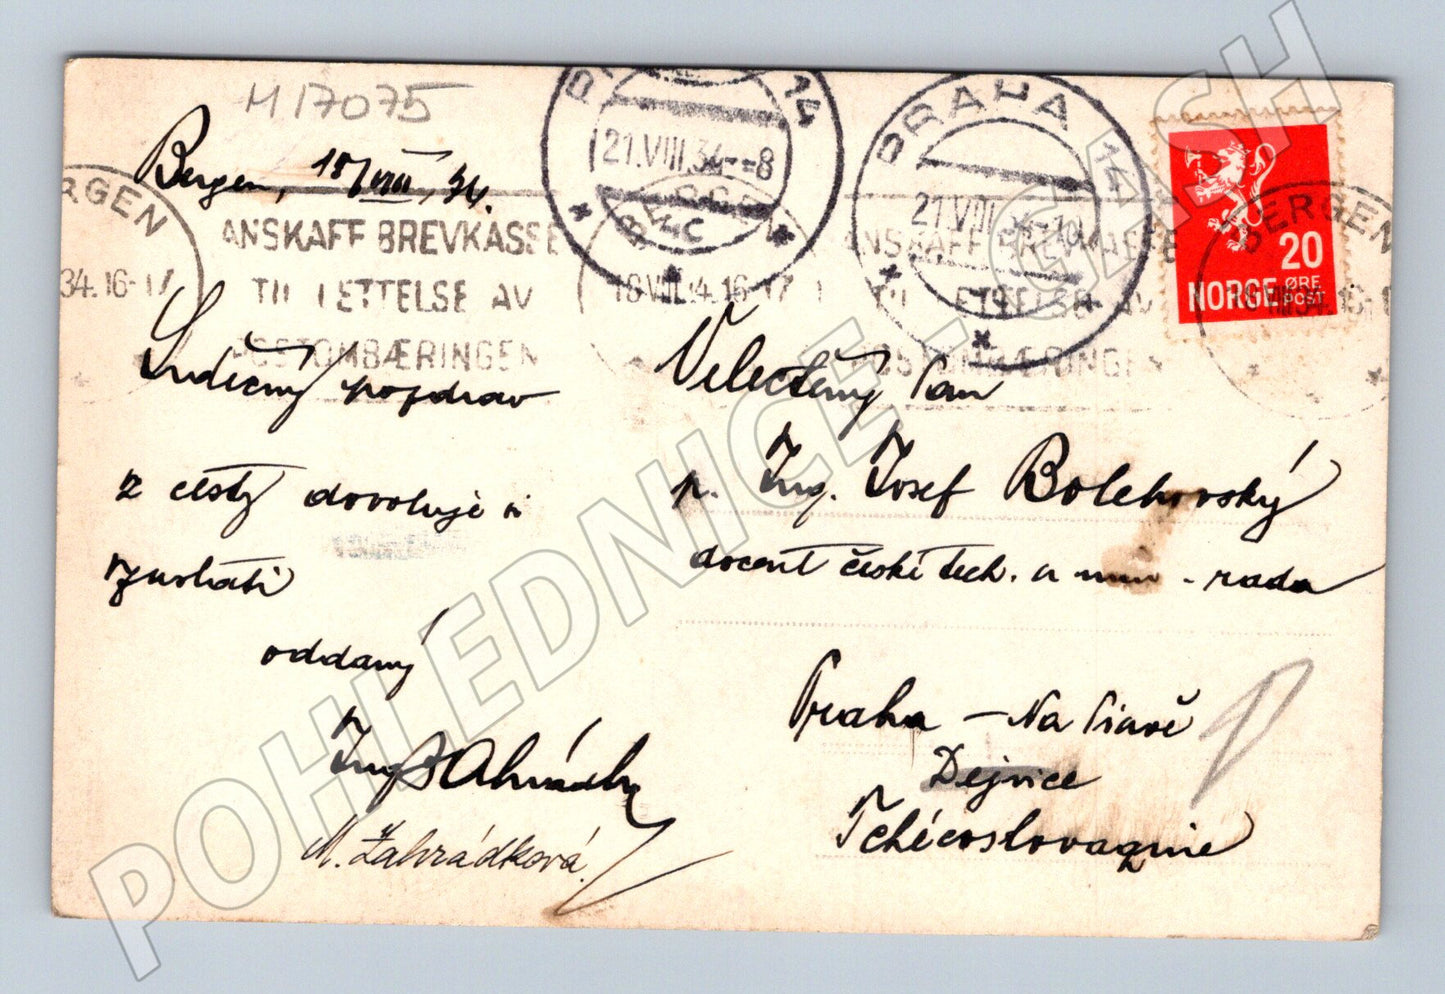 M 17075
Bergen, 18/VIII, 34.
BERGEN
34.16-17
ANSKAFF BREVKASSE
TIL LETTELSE AV
POSTOMBÆRINGEN
21.VIII.34.-8
4C
BERGEN
18.VIII.34.16-17
PRAHA 14
21.VIII.34-10
ANSKAFF BREVKASSE
TIL LETTELSE AV
POSTOMBÆRINGEN
BERGEN
20
NORGE ØRE
POST
Srdečný pozdrav
z cesty dovoluje si
oddaný
M. Zahrádková.
Velectěný Pan
p. Ing. Josef Bolehovský
docent české tech. a - rada
Praha - Na Piavě
Dejvice
Tchécoslovaquie
POHLEDNICE - GASH